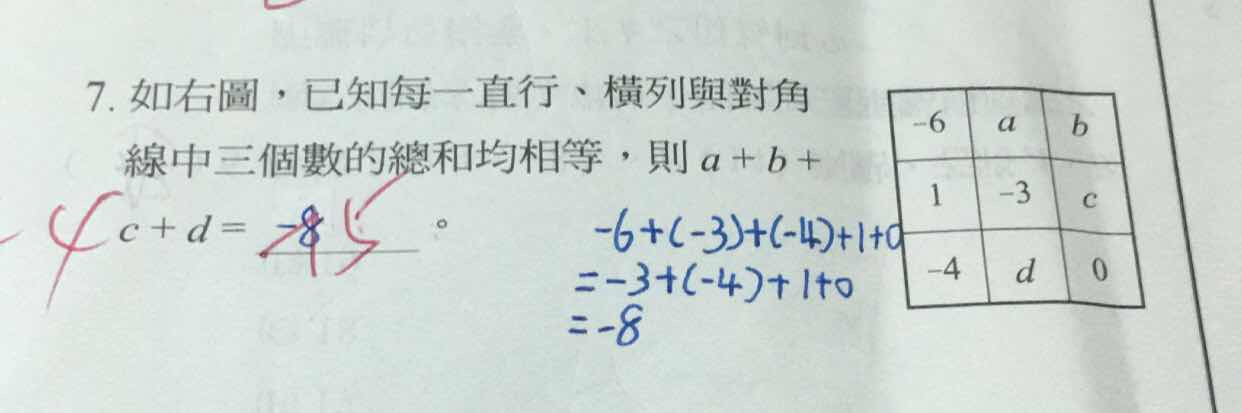 7. 如右圖，已知每一直行、橫列與對角
線中三個數的總和均相等，則 a + b +
c + d = -8 。
-6+(-3)+(-4)+1+0
=-3+(-4)+1+0
=-8
-6 a b
1 -3 c
-4 d 0